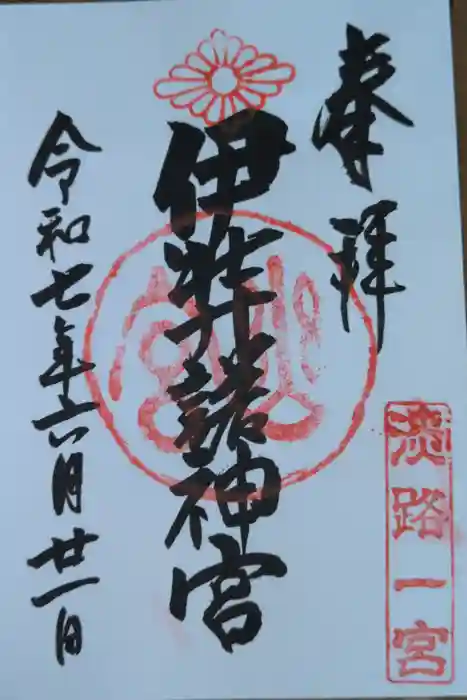 奉拝
淡路一宮
伊弉諾神宮
令和七年六月廿一日